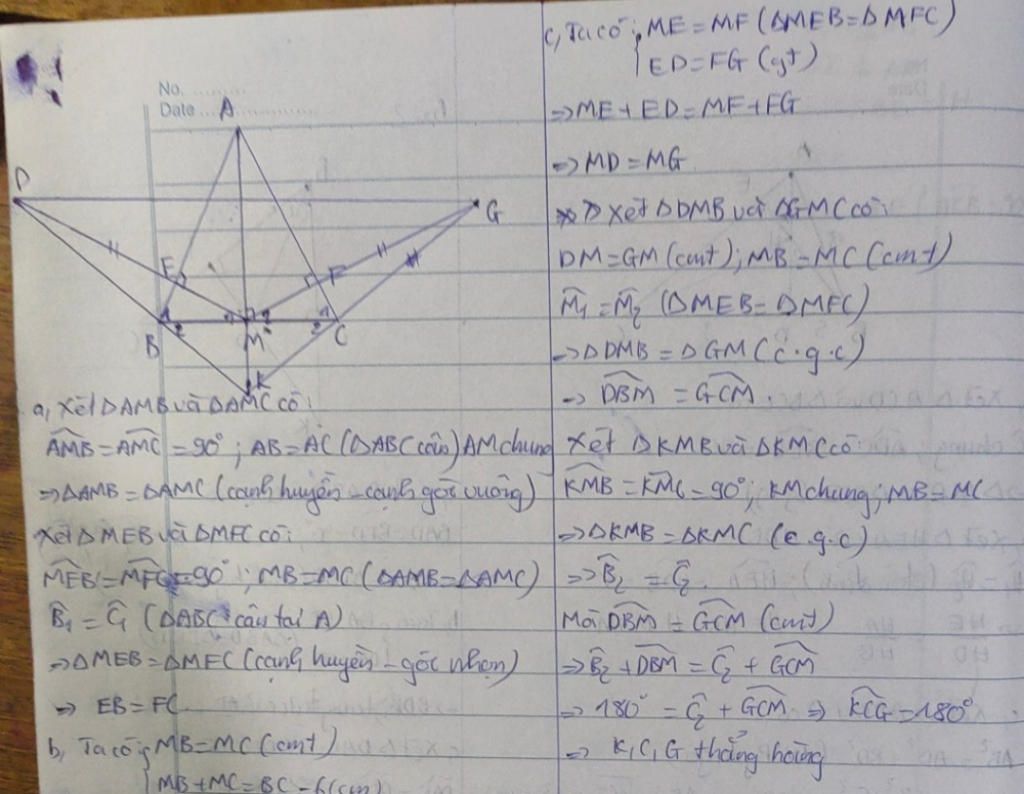 No. ..........
Date ..................
A
D
G
E
F
B
M
C
K
1
2
1
2
1
2
a, Xét ΔAMB và ΔAMC có:
AMB = AMC = 90°; AB = AC (ΔABC cân) AM chung
⇒ ΔAMB = ΔAMC (cạnh huyền - cạnh góc vuông)
Xét ΔMEB và ΔMFC có:
MEB = MFC = 90°; MB = MC (ΔAMB = ΔAMC)
B̂₁ = Ĉ₁ (ΔABC cân tại A)
⇒ ΔMEB = ΔMFC (cạnh huyền - góc nhọn)
⇒ EB = FC
b, Ta có { MB = MC (cmt)
MB + MC = BC = 6 (cm)
c, Ta có: { ME = MF (ΔMEB = ΔMFC)
ED = FG (gt)
⇒ ME + ED = MF + FG
⇒ MD = MG
Xét ΔDMB và ΔGMC có:
DM = GM (cmt); MB = MC (cmt)
M̂₁ = M̂₂ (ΔMEB = ΔMFC)
⇒ ΔDMB = ΔGM (c.g.c)
⇒ DBM = GCM.
Xét ΔKMB và ΔKMC có
KMB = KMC = 90°; KM chung; MB = MC
⇒ ΔKMB = ΔKMC (c.g.c)
⇒ B̂₂ = Ĉ₂
Mà DBM = GCM (cmt)
⇒ B̂₂ + DBM = Ĉ₂ + GCM
⇒ 180° = Ĉ₂ + GCM ⇒ KCG = 180°
⇒ K, C, G thẳng hàng